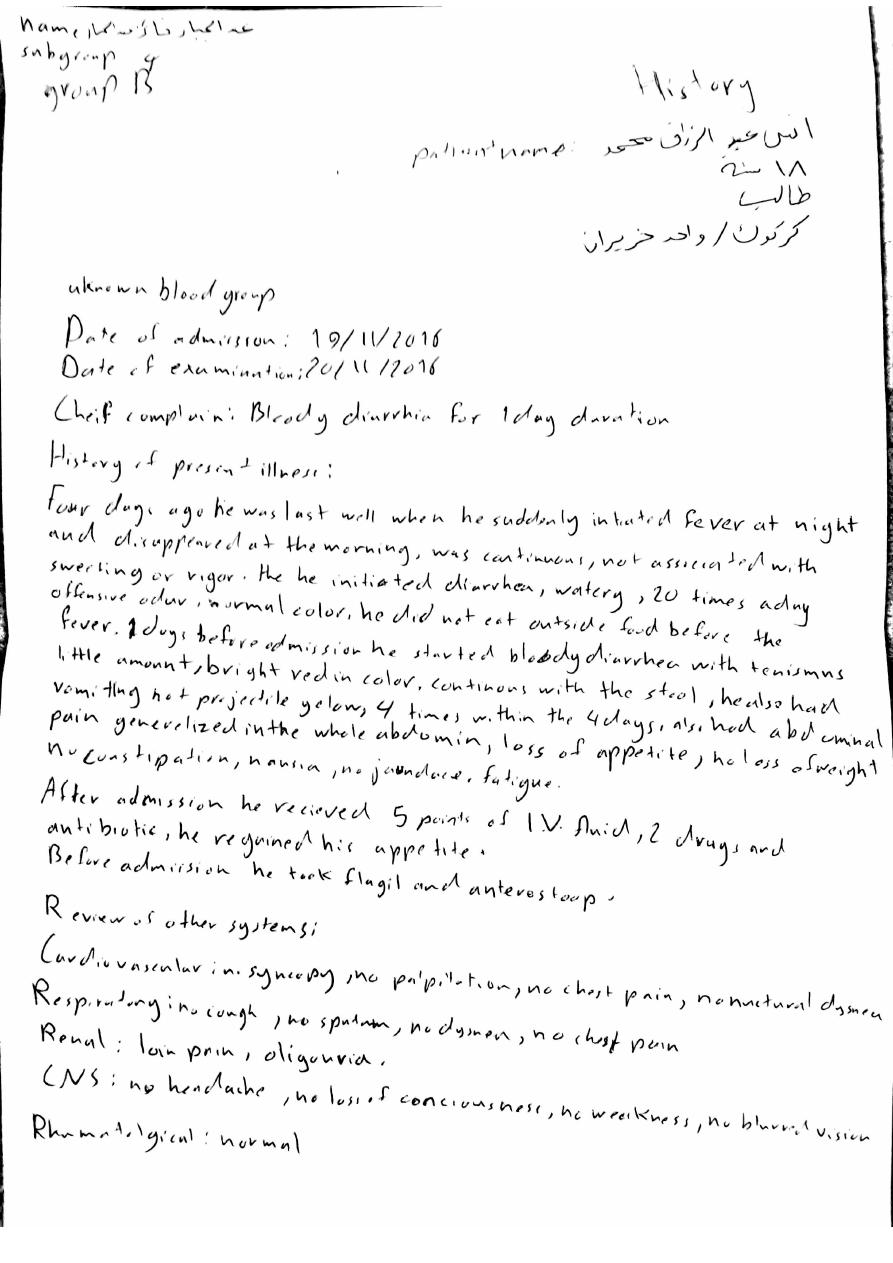 name:
subgroup
group B
History
patient name: انس عبد الرزاق محمد
١٨ سنة
طالب
كركوك / واحد حزيران
uknown blood group
Date of admission: 19/11/2016
Date of examination: 20/11/2016
Cheif complain: Bloody diarrhia for 1 day duration
History of present illness:
Four days ago he was last well when he suddenly intiated fever at night
and disappeared at the morning, was continuous, not associated with
sweeting or rigor. the he initiated diarrhea, watery, 20 times aday
offensive odur, normal color, he did not eat outside food before the
fever. days before admission he started bloody diarrhea with tenismns
little amount, bright red in color, continous with the stool, he also had
vomiting not projectile yelow, 4 times within the 4 days, also had abdominal
pain generelized in the whole abdomin, loss of appetite, no loss of weight
no constipation, nausia, no jaundace, fatigue.
After admission he recieved 5 points of I.V. fluid, 2 drugs and
antibiotic, he regained his appetite.
Before admission he took flagil and anterostoop.
Review of other systems:
Cardiovascular: syncopy, no palpilation, no chest pain, no nuctural dysnea
Respiratory: no cough, no sputum, no dysnea, no chest pain
Renal: loin pain, oligouria.
CNS: no headache, no loss of conciousness, no weakness, no blurred vision
: normal